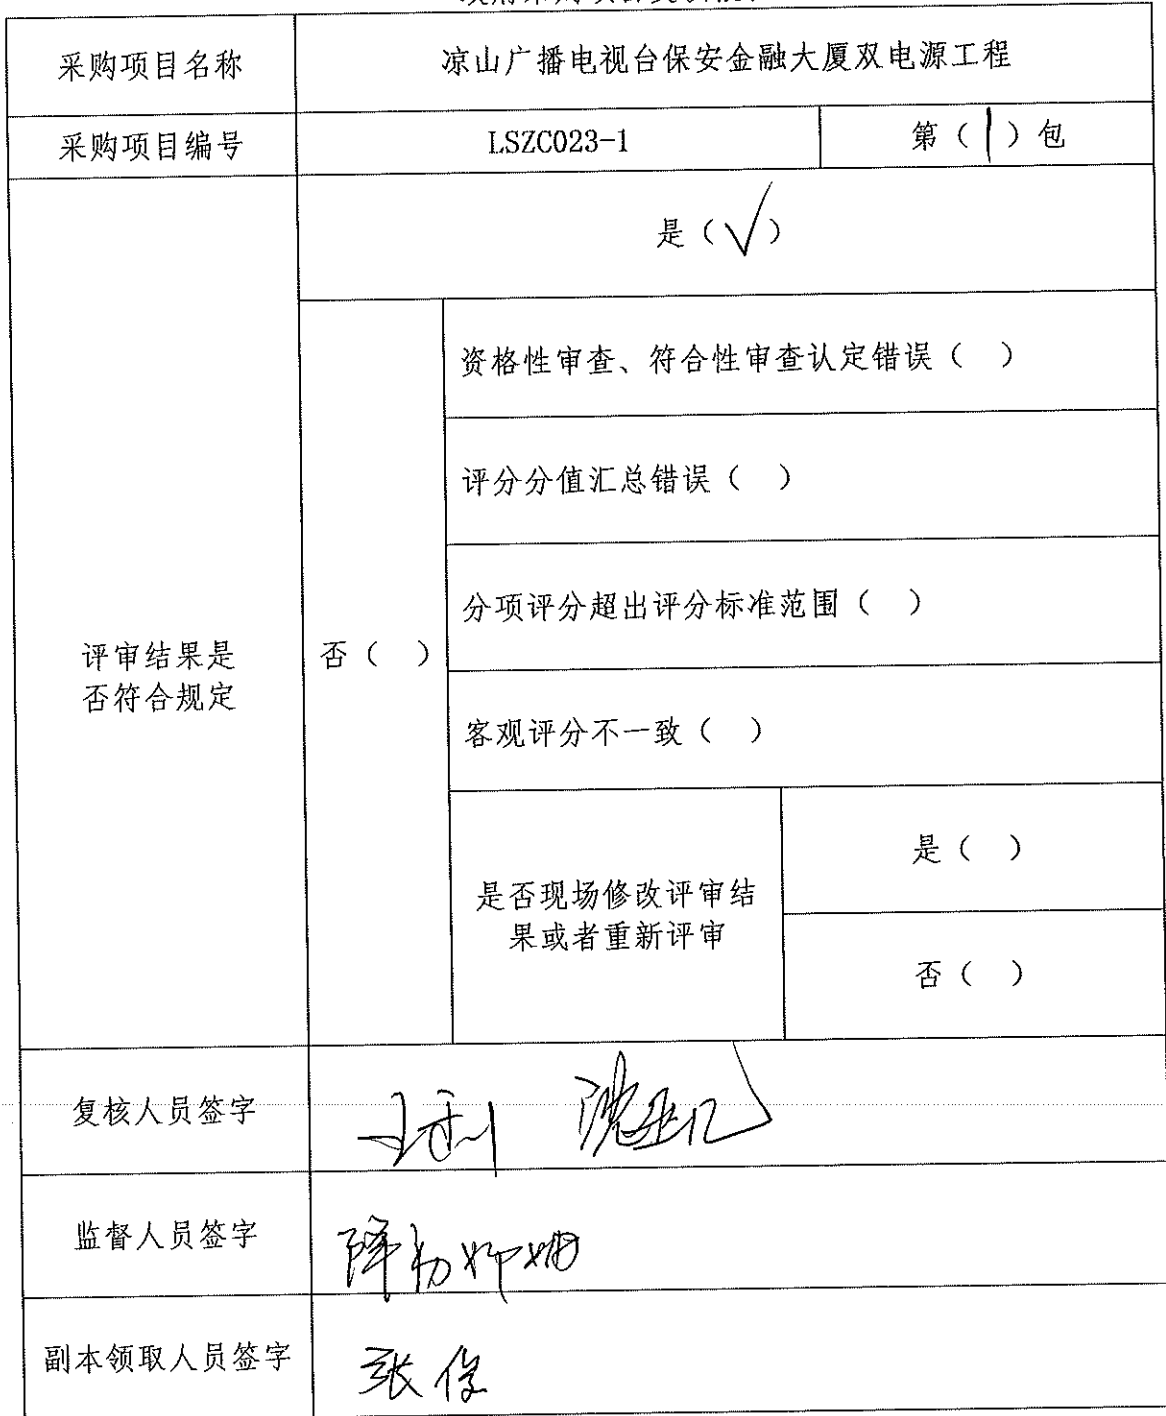 采购项目名称 凉山广播电视台保安金融大厦双电源工程
采购项目编号 LSZC023-1 第（1）包
是（√）
资格性审查、符合性审查认定错误（ ）
评分分值汇总错误（ ）
分项评分超出评分标准范围（ ）
评审结果是
否符合规定
否（ ）
客观评分不一致（ ）
是否现场修改评审结
果或者重新评审
是（ ）
否（ ）
复核人员签字
监督人员签字
副本领取人员签字 张俊